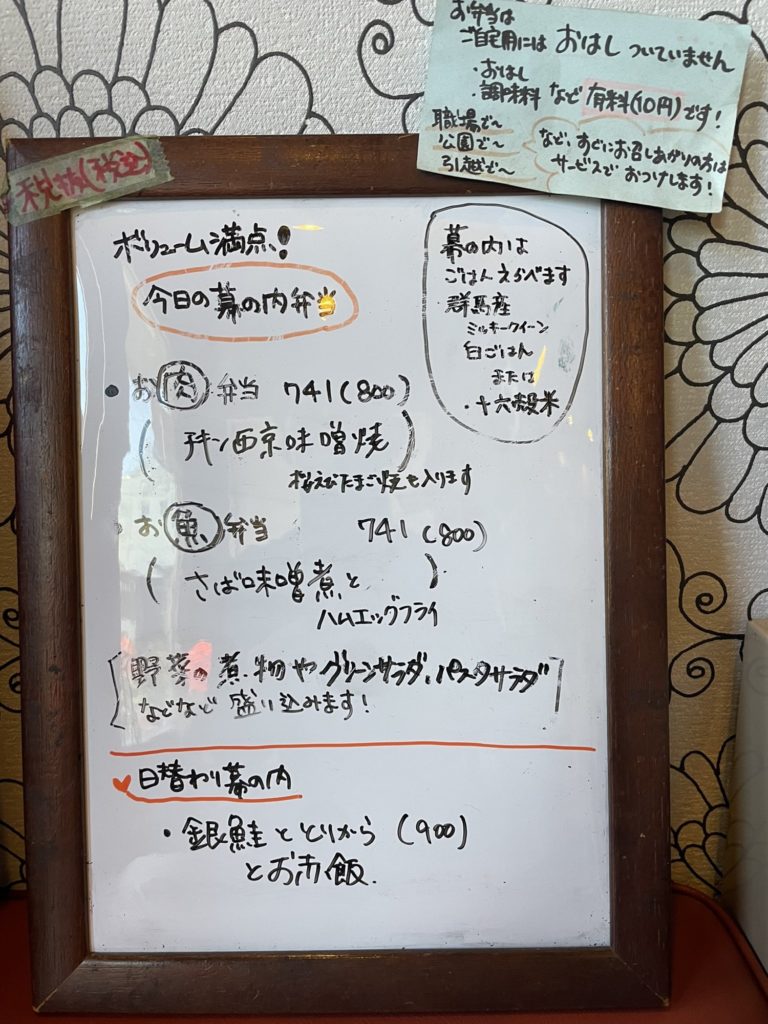 お弁当は
ご自宅用には おはし ついていません
・おはし
・調味料 など 有料(10円)です!
職場で〜
公園で〜
引越で〜
など、すぐにお召しあがりの方は
サービスで おつけします!
税抜(税込)
ボリューム満点!
今日の幕の内弁当
幕の内は
ごはんえらべます
群馬産
ミルキークイーン
白ごはん
または
・十六穀米
お肉弁当 741(800)
(チキン西京味噌焼)
桜えびたまご焼も入ります
・お魚弁当 741(800)
(さば味噌煮と)
ハムエッグフライ
[野菜の煮物やグリーンサラダ、パスタサラダ
などなど 盛り込みます!]
日替わり幕の内
・銀鮭ととりから (900)
とお赤飯.